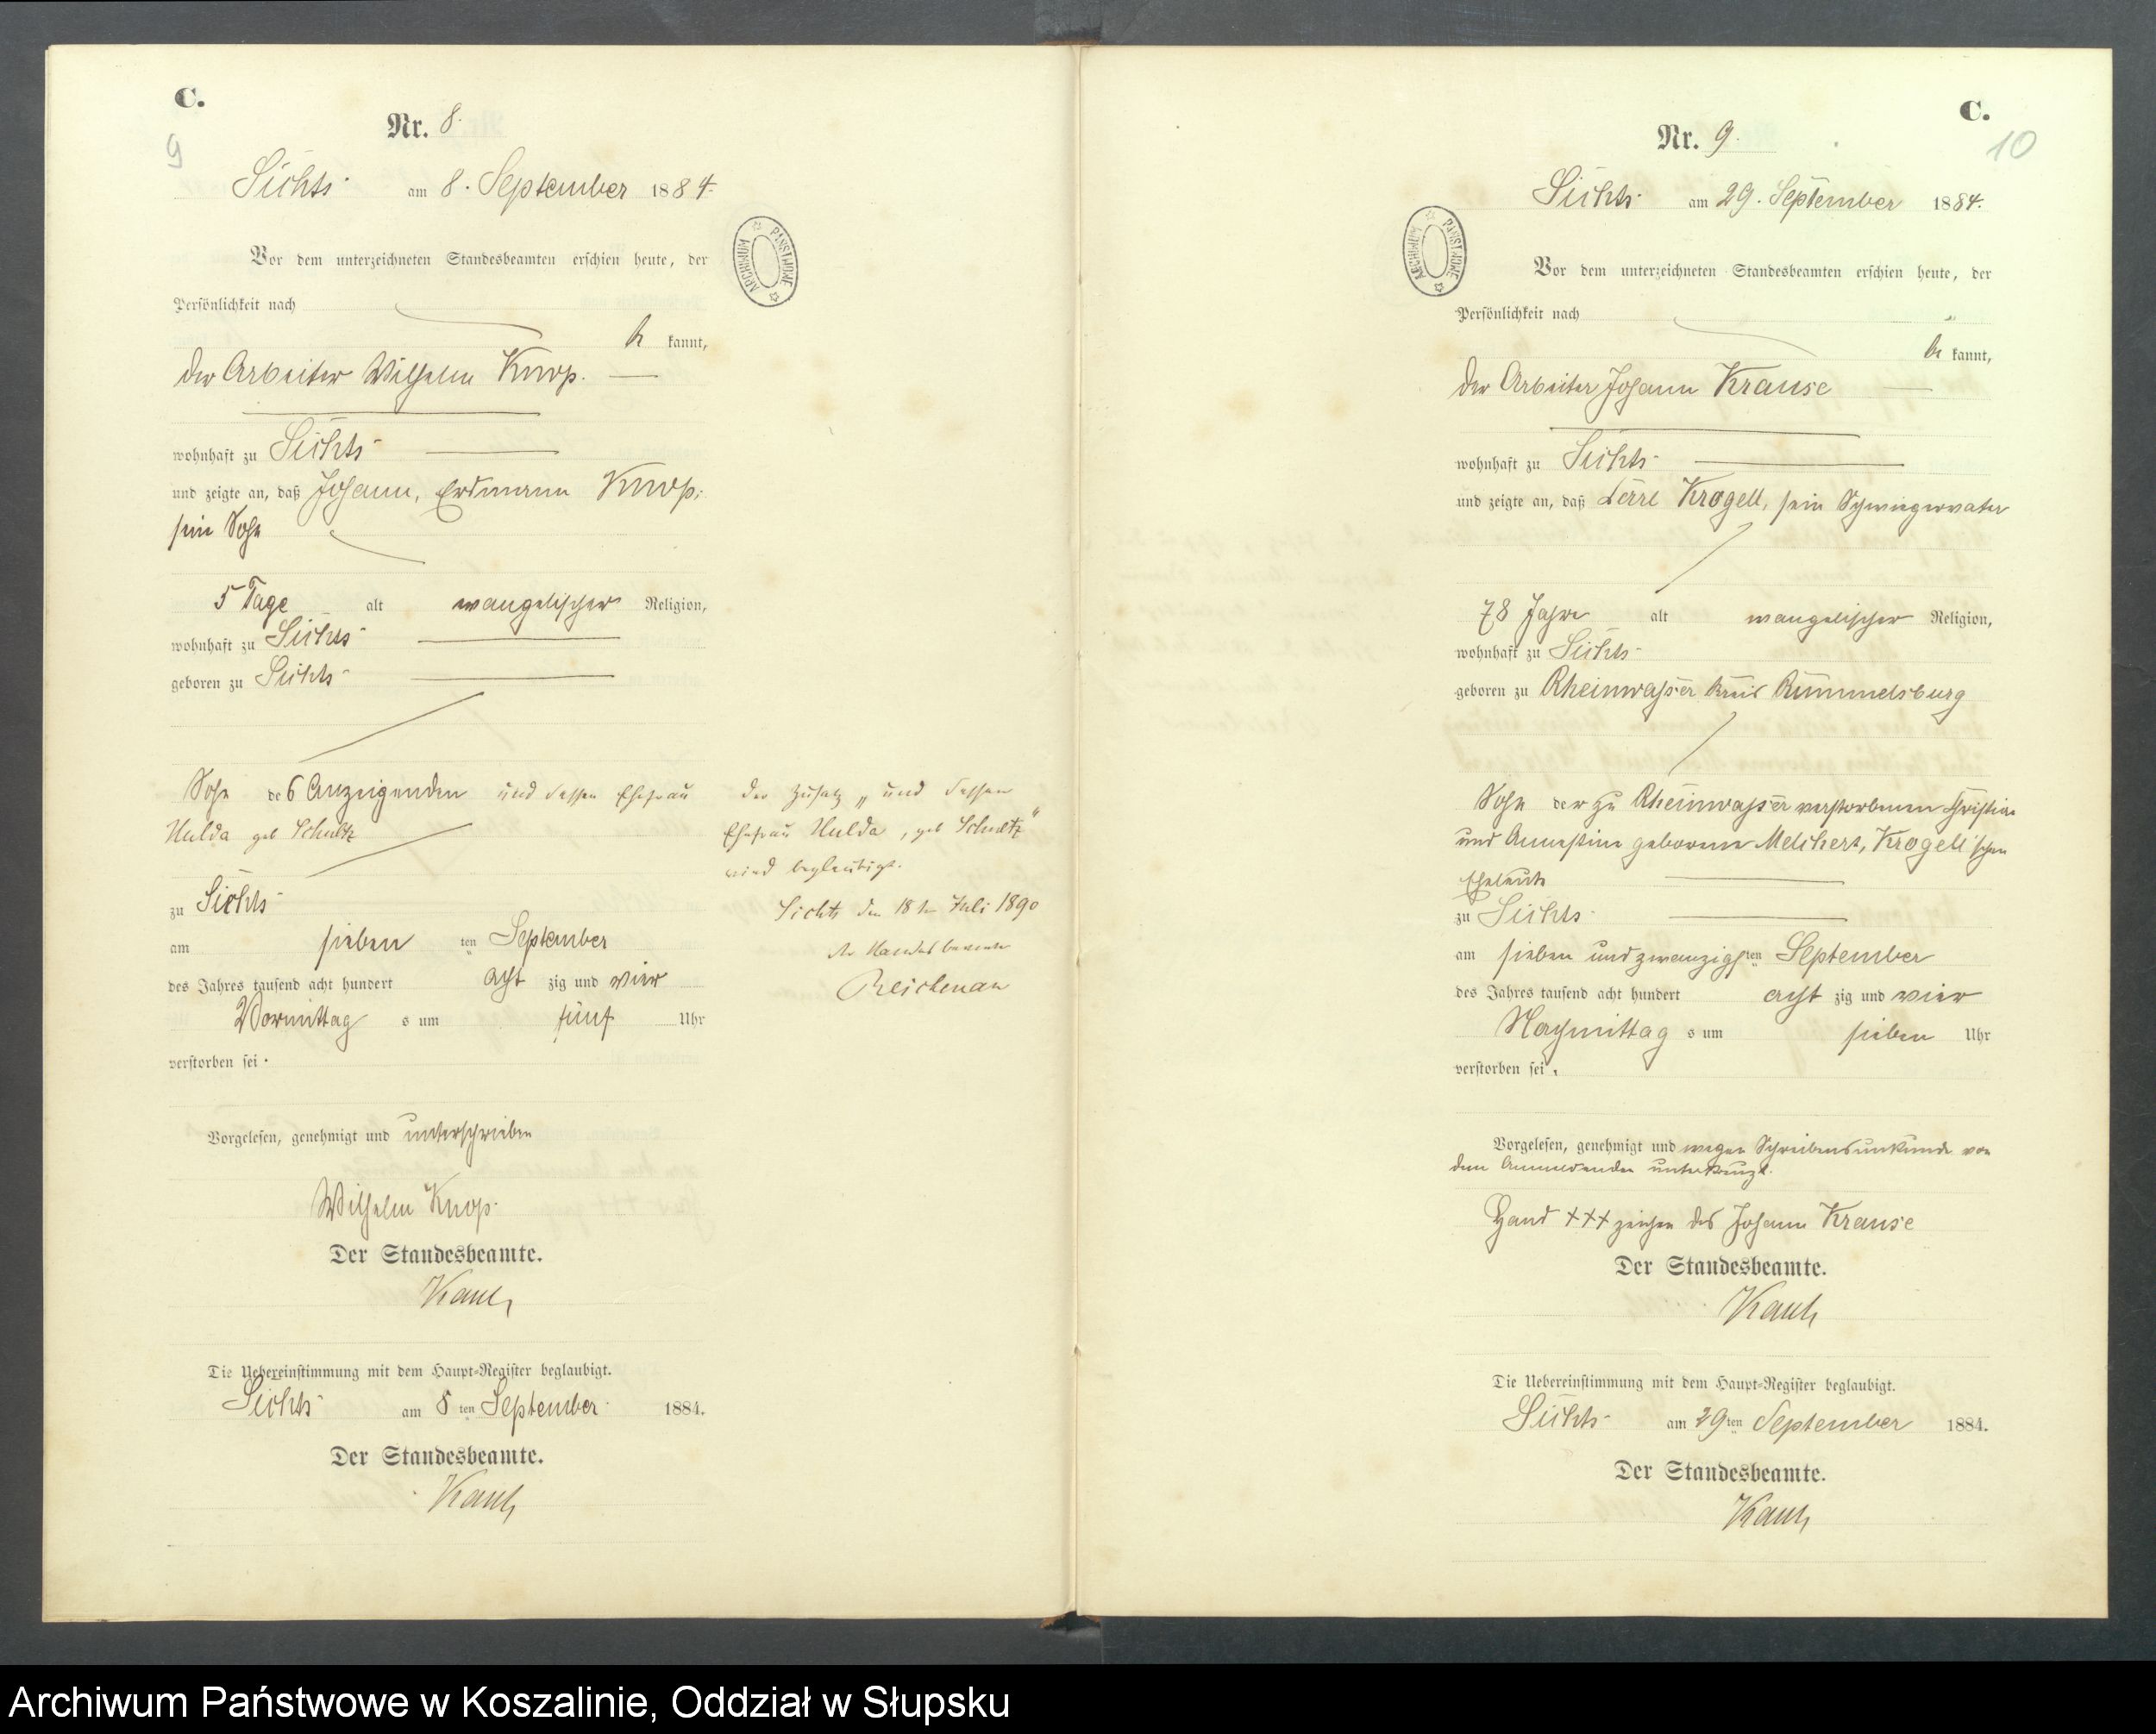 C.
9
Nr. 8.
Sichts am 8. September 1884.
Vor dem unterzeichneten Standesbeamten erschien heute, der
Persönlichkeit nach
be kannt,
der Arbeiter Wilhelm Knop.
wohnhaft zu Sichts
und zeigte an, daß Johann, Erdmann Knop,
sein Sohn
5 Tage alt evangelischer Religion,
wohnhaft zu Sichts
geboren zu Sichts
Sohn des Anzeigenden und dessen Ehefrau
Hulda geb Schultz
zu Sichts
am sieben ten September
des Jahres tausend acht hundert acht zig und vier
Vormittag s um fünf Uhr
verstorben sei.
Vorgelesen, genehmigt und unterschrieben
Wilhelm Knop.
Der Standesbeamte.
Die Uebereinstimmung mit dem Haupt-Register beglaubigt.
Sichts am 8 ten September 1884.
Der Standesbeamte.
ARCHIWUM PAŃSTWOWE
Der Zusatz „und dessen
Ehefrau Hulda, geb Schultz"
wird beglaubigt.
Sichts den 18 ten Juli 1890
Der Standesbeamte
Reichenau
C.
10
Nr. 9.
Sichts am 29. September 1884.
ARCHIWUM PAŃSTWOWE
Vor dem unterzeichneten Standesbeamten erschien heute, der
Persönlichkeit nach
be kannt,
der Arbeiter Johann Krause
wohnhaft zu Sichts
und zeigte an, daß Krogell, sein Schwiegervater
78 Jahre alt evangelischer Religion,
wohnhaft zu Sichts
geboren zu Rheinwasser Kreis Rummelsburg
Sohn der zu Rheinwasser verstorbenen Christian
und geborene Melchert, Krogell'schen
Eheleute
zu Sichts
am sieben und zwanzigsten September
des Jahres tausend acht hundert acht zig und vier
Nachmittag s um sieben Uhr
verstorben sei.
Vorgelesen, genehmigt und wegen Schreibensunkunde von
dem Anmeldenden unterkreuzt.
Hand +++ zeichen des Johann Krause
Der Standesbeamte.
Die Uebereinstimmung mit dem Haupt-Register beglaubigt.
Sichts am 29 ten September 1884.
Der Standesbeamte.
Archiwum Państwowe w Koszalinie, Oddział w Słupsku